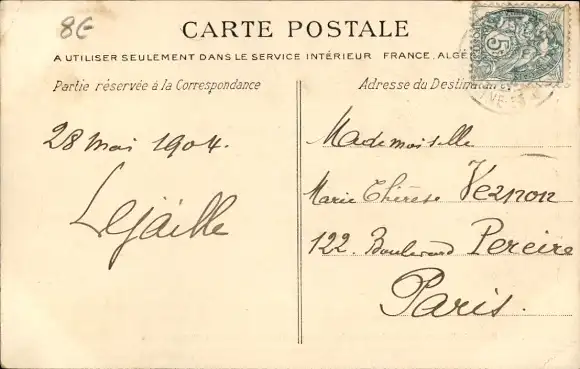 8€
CARTE POSTALE
A UTILISER SEULEMENT DANS LE SERVICE INTÉRIEUR FRANCE, ALGÉ
Partie réservée à la Correspondance
Adresse du Destina
5
28 Mai 1904.
Lejaille
Mademoiselle
Marie Thérèse Veznon
122 Boulevard Pereire
Paris.